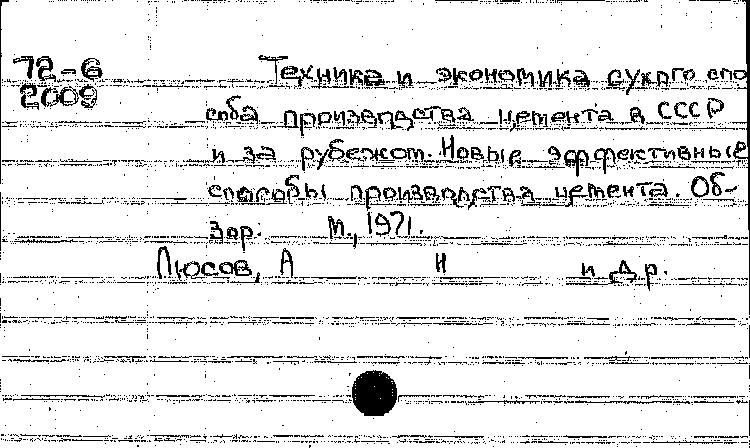 72-6
2009
Техника и экономика сухого спо
соба производства цемента в СССР
и за рубежом. Новые эффективные
способы производства цемента. Об-
зор. М., 1971.
Люсов, А Н и др.